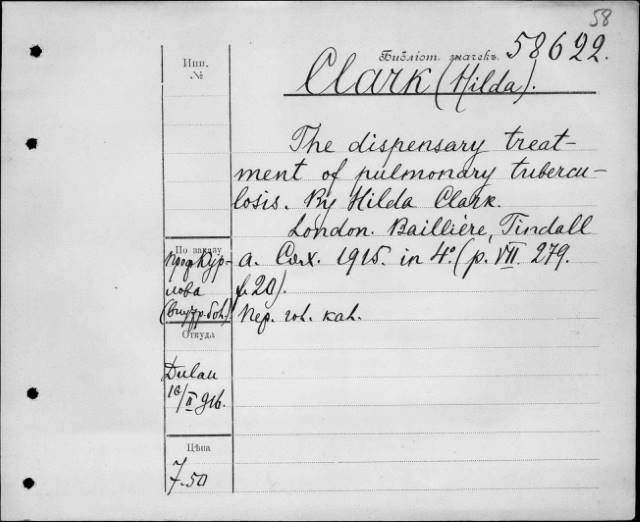 58
Библіот. значекъ 58622.
Инв.
№
Clark (Hilda).
The dispensary treat-
ment of pulmonary tubercu-
losis. By Hilda Clark.
London. Baillière, Tindall
a. Cox. 1915. in 4° (p. VII. 279.
20).
По заказу
Проф Кур-
лова
Пер. кал.
Откуда
Dulau
16/II 916.
Цѣна
7.50